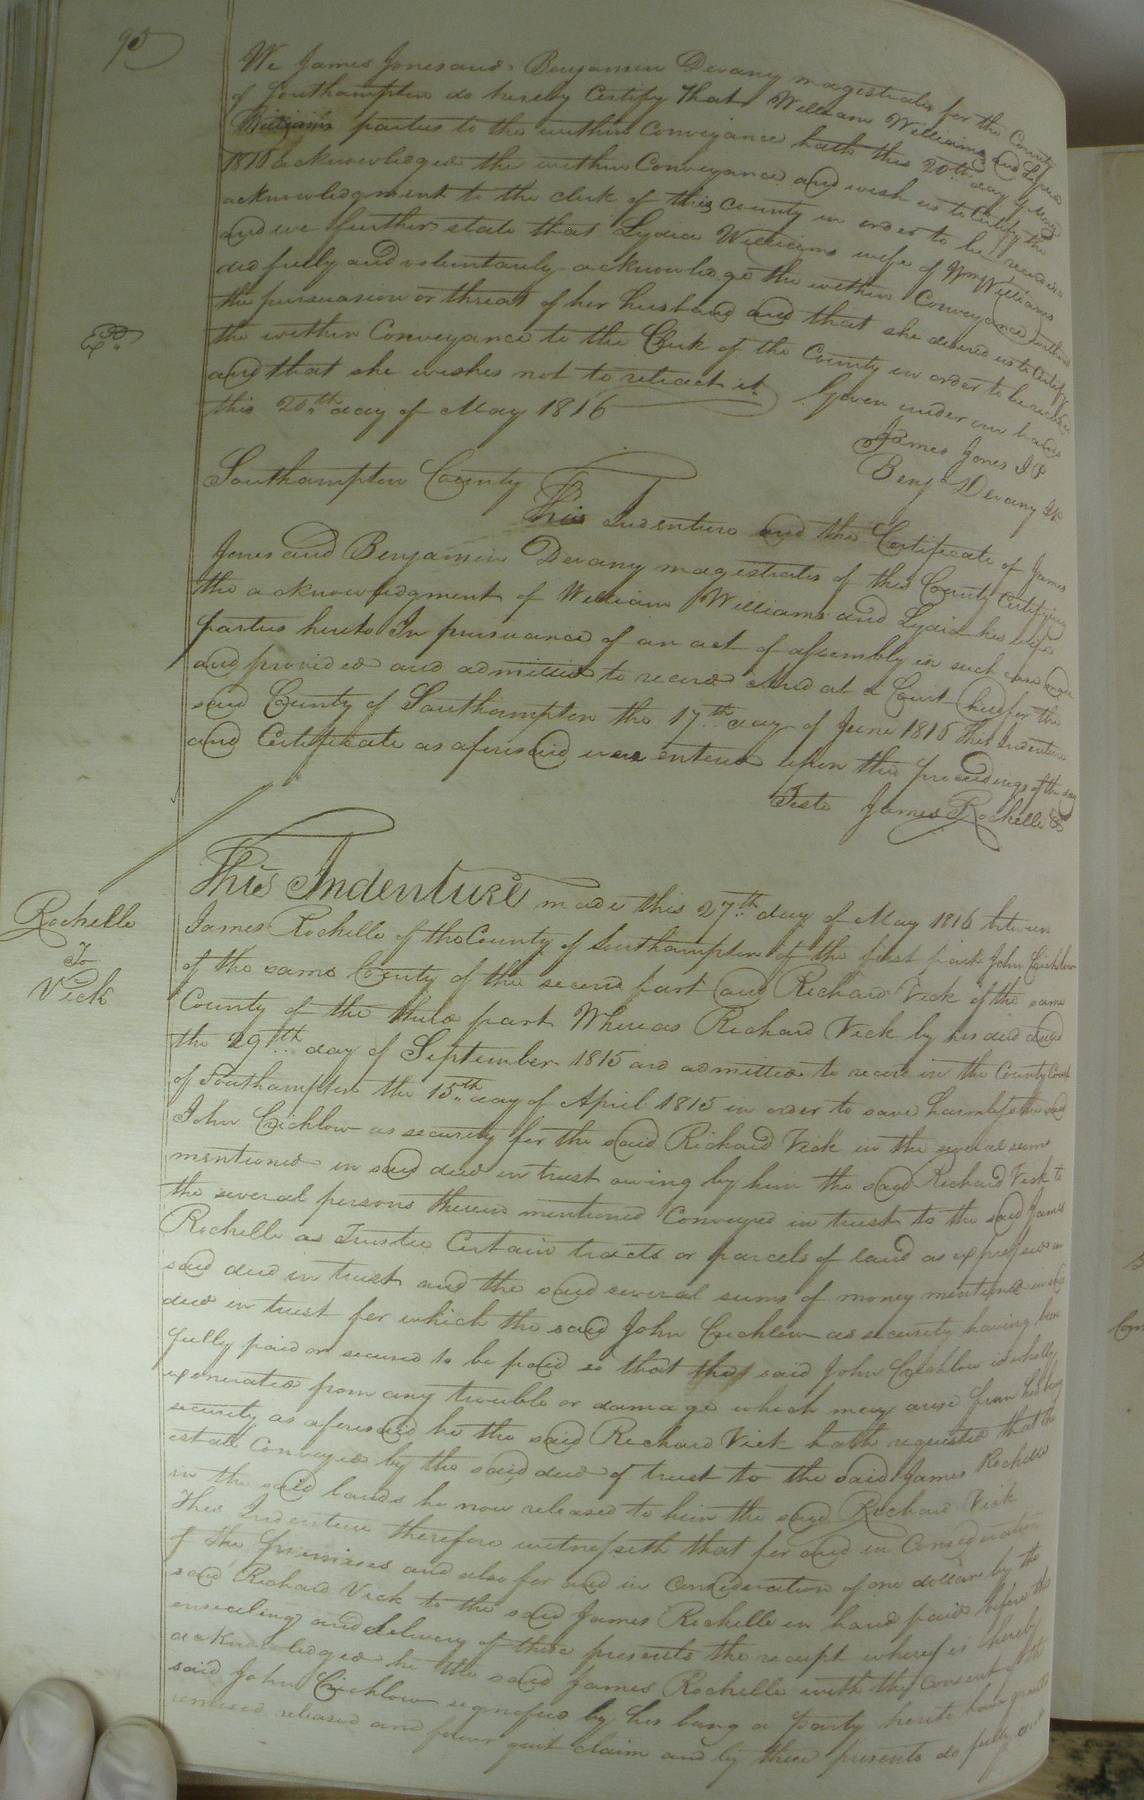 95
We James Jones and Benjamin Devany magistrates for the County
of Southampton do hereby Certify that William Williams and Lydia
Williams parties to the within Conveyance hath this 20th day of May
1816 acknowledged the within Conveyance and wish us to Certify the
acknowledgment to the clerk of this County in order to be recorded
and we further state that Lydia Williams wife of Wm Williams
did fully and voluntarily acknowledge the within Conveyance without
the persuasion or threat of her husband and that she desired us to Certify
the within Conveyance to the Clerk of the County in order to be recorded
and that she wishes not to retract it Given under our hands
this 20th day of May 1816
James Jones J P
Benja Devany JP
Southampton County
This Indenture and the Certificate of James
Jones and Benjamin Devany magistrates of this County Certifying
the acknowledgment of William Williams and Lydia his wife
parties hereto In pursuance of an act of assembly in such case made
and provided and admitted to record And at a Court held for the
said County of Southampton the 17th day of June 1816 This Indenture
and Certificate as aforesaid were entered upon the proceedings of the day
Teste James Rochelle C
Rochelle
To
Vick
This Indenture made this 27th day of May 1816 between
James Rochelle of the County of Southampton of the first part John Crichlow
of the same County of the second part and Richard Vick of the same
County of the third part Whereas Richard Vick by his deed dated
the 29th day of September 1815 and admitted to record in the County Court
of Southampton the 15th day of April 1815 in order to save harmless the said
John Crichlow as security for the said Richard Vick in the several sums
mentioned in said deed in trust owing by him the said Richard Vick to
the several persons therein mentioned Conveyed in trust to the said James
Rochelle as Trustee Certain tracts or parcels of land as expressed in
said deed in trust and the said several sums of money mentioned in said
deed in trust for which the said John Crichlow as security having been
fully paid or secured to be paid so that the said John Crichlow is wholly
exonerated from any trouble or damage which may arise from his being
security as aforesaid he the said Richard Vick hath requested that the
estate Conveyed by the said deed of trust to the said James Rochelle
in the said lands be now released to him the said Richard Vick
This Indenture therefore witnesseth that for and in Consideration
of the premises and also for and in Consideration of one dollar by the
said Richard Vick to the said James Rochelle in hand paid before the
ensealing and delivery of these presents the receipt whereof is hereby
acknowledged he the said James Rochelle with the Consent of the
said John Crichlow signified by his being a party hereto hath granted
remised released and forever quit claim and by these presents do fully